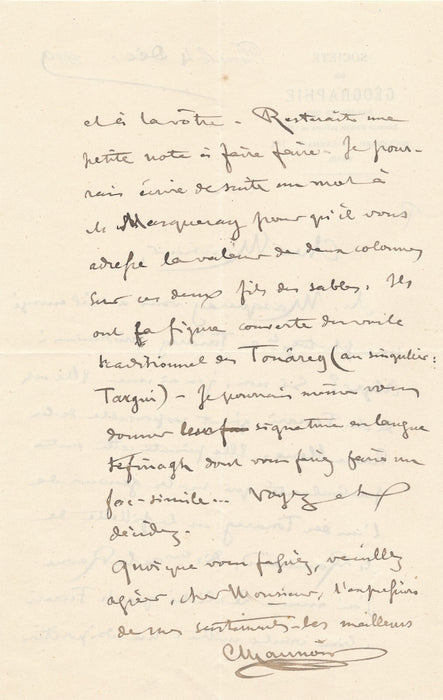 et à la vôtre - Resterait une
petite note à faire faire - Je pour-
rais écrire de suite un mot à
M. Masqueray pour qu'il vous
adresse la valeur de deux colonnes
sur ces deux fils des sables. Ils
ont la figure couverte du voile
traditionnel des Touâreg (au singulier:
Targui) - Je pourrais même vous
donner leur signature en langue
tefinagh dont vous feriez faire un
fac-simile... Voyez et
décidez.
Quoique vous fassiez, veuillez
agréer, cher Monsieur, l'expression
de mes sentiments les meilleurs
CMaunoir